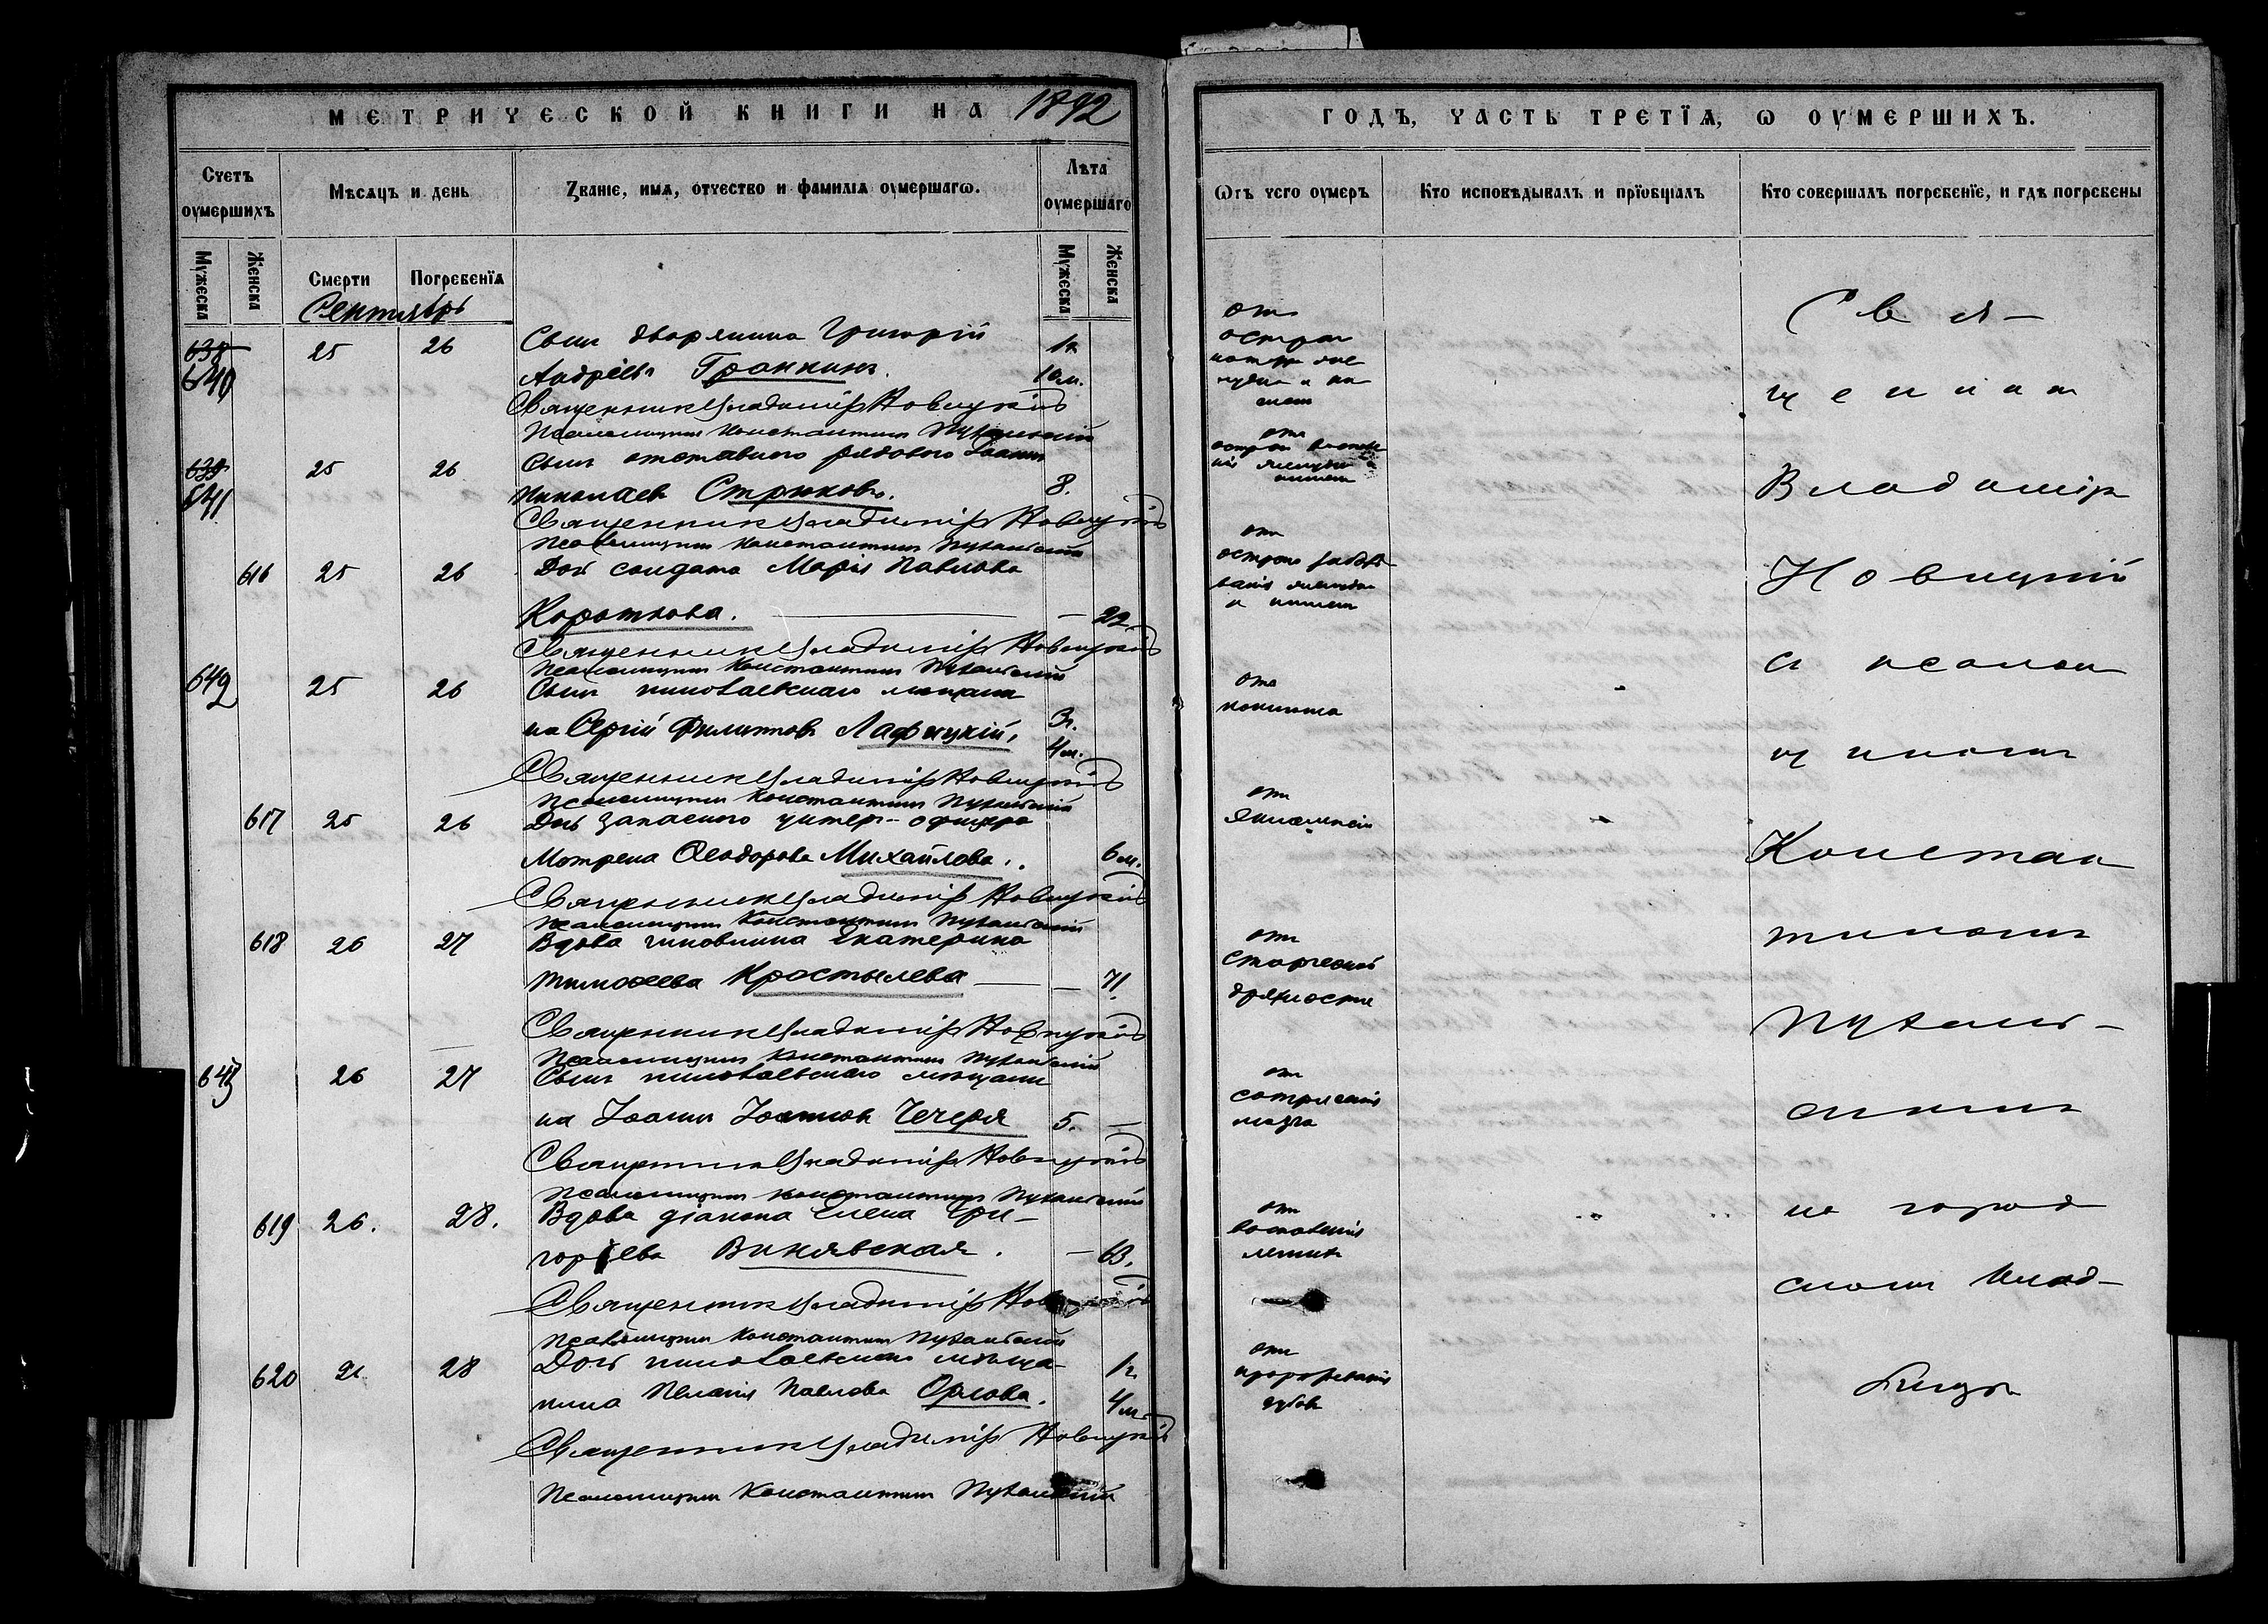 МЕТРИЧЕСКОЙ КНИГИ НА 1892
Счетъ оумершихъ
Мѣсяцъ и день
Званіе, имя, отчество и фамилія оумершагω.
Лѣта оумершаго
Мужеска
Женска
Смерти
Погребенїя
Мужеска
Женска
Сентябрь
638 25 26 Сынъ дворянина Григорій 1г.
640 Андреевъ Гранкинъ. 10м.
Священникъ Владиміръ Новицкій
Псаломщикъ Константинъ Пуханскій
639 25 26 Сынъ отставного рядового Іоаннъ
641 Николаевъ Стрюковъ. 8.
Священникъ Владиміръ Новицкій
Псаломщикъ Константинъ Пуханскій
616 25 26 Дочь солдата Марія Павлова
Короткова. — 22.
Священникъ Владиміръ Новицкій
Псаломщикъ Константинъ Пуханскій
642 25 26 Сынъ николаевскаго мѣщани
на Сергій Филиповъ Лафицкій, 3г.
4м.
Священникъ Владиміръ Новицкій
Псаломщикъ Константинъ Пуханскій
617 25 26 Дочь запасного унтеръ-офицера
Мотрена Ѳеодорова Михайлова. 6м.
Священникъ Владиміръ Новицкій
Псаломщикъ Константинъ Пуханскій
618 26 27 Вдова чиновника Екатерина
Тимоѳеева Кростылева — — 71.
Священникъ Владиміръ Новицкій
Псаломщикъ Константинъ Пуханскій
643 26 27 Сынъ николаевскаго мѣщани
на Іоаннъ Іоанновъ Чечеря 5. —
Священникъ Владиміръ Новицкій
Псаломщикъ Константинъ Пуханскій
619 26. 28. Вдова діакона Елена Гри-
горіева Винявская. — 63.
Священникъ Владиміръ
Псаломщикъ Константинъ Пуханскій
620 28 Дочь николаевскаго мѣща- 1г.
нина Пелагія Павлова Орлова. 4м.
Священникъ Владиміръ Новицкій
Псаломщикъ Константинъ Пуханскій
ГОДЪ, ЧАСТЬ ТРЕТЇЯ, Ѡ ОУМЕРШИХЪ.
Ѿтъ чего оумеръ
Кто исповѣдывалъ и прїобщалъ
Кто совершалъ погребенїе, и гдѣ погребены
отъ
остраго
отъ
отъ
отъ
отъ
отъ
эклампсіи
отъ
старческой
дряхлости
отъ
сотрясенія
мозга
отъ
воспаленія
легкихъ
отъ
прорѣзыванія
зубовъ
Свя-
щенникъ
Владиміръ
Новицкій
съ псалом
щикомъ
Констан
тиномъ
Пухань-
скимъ
на город
скомъ клад-
бищѣ